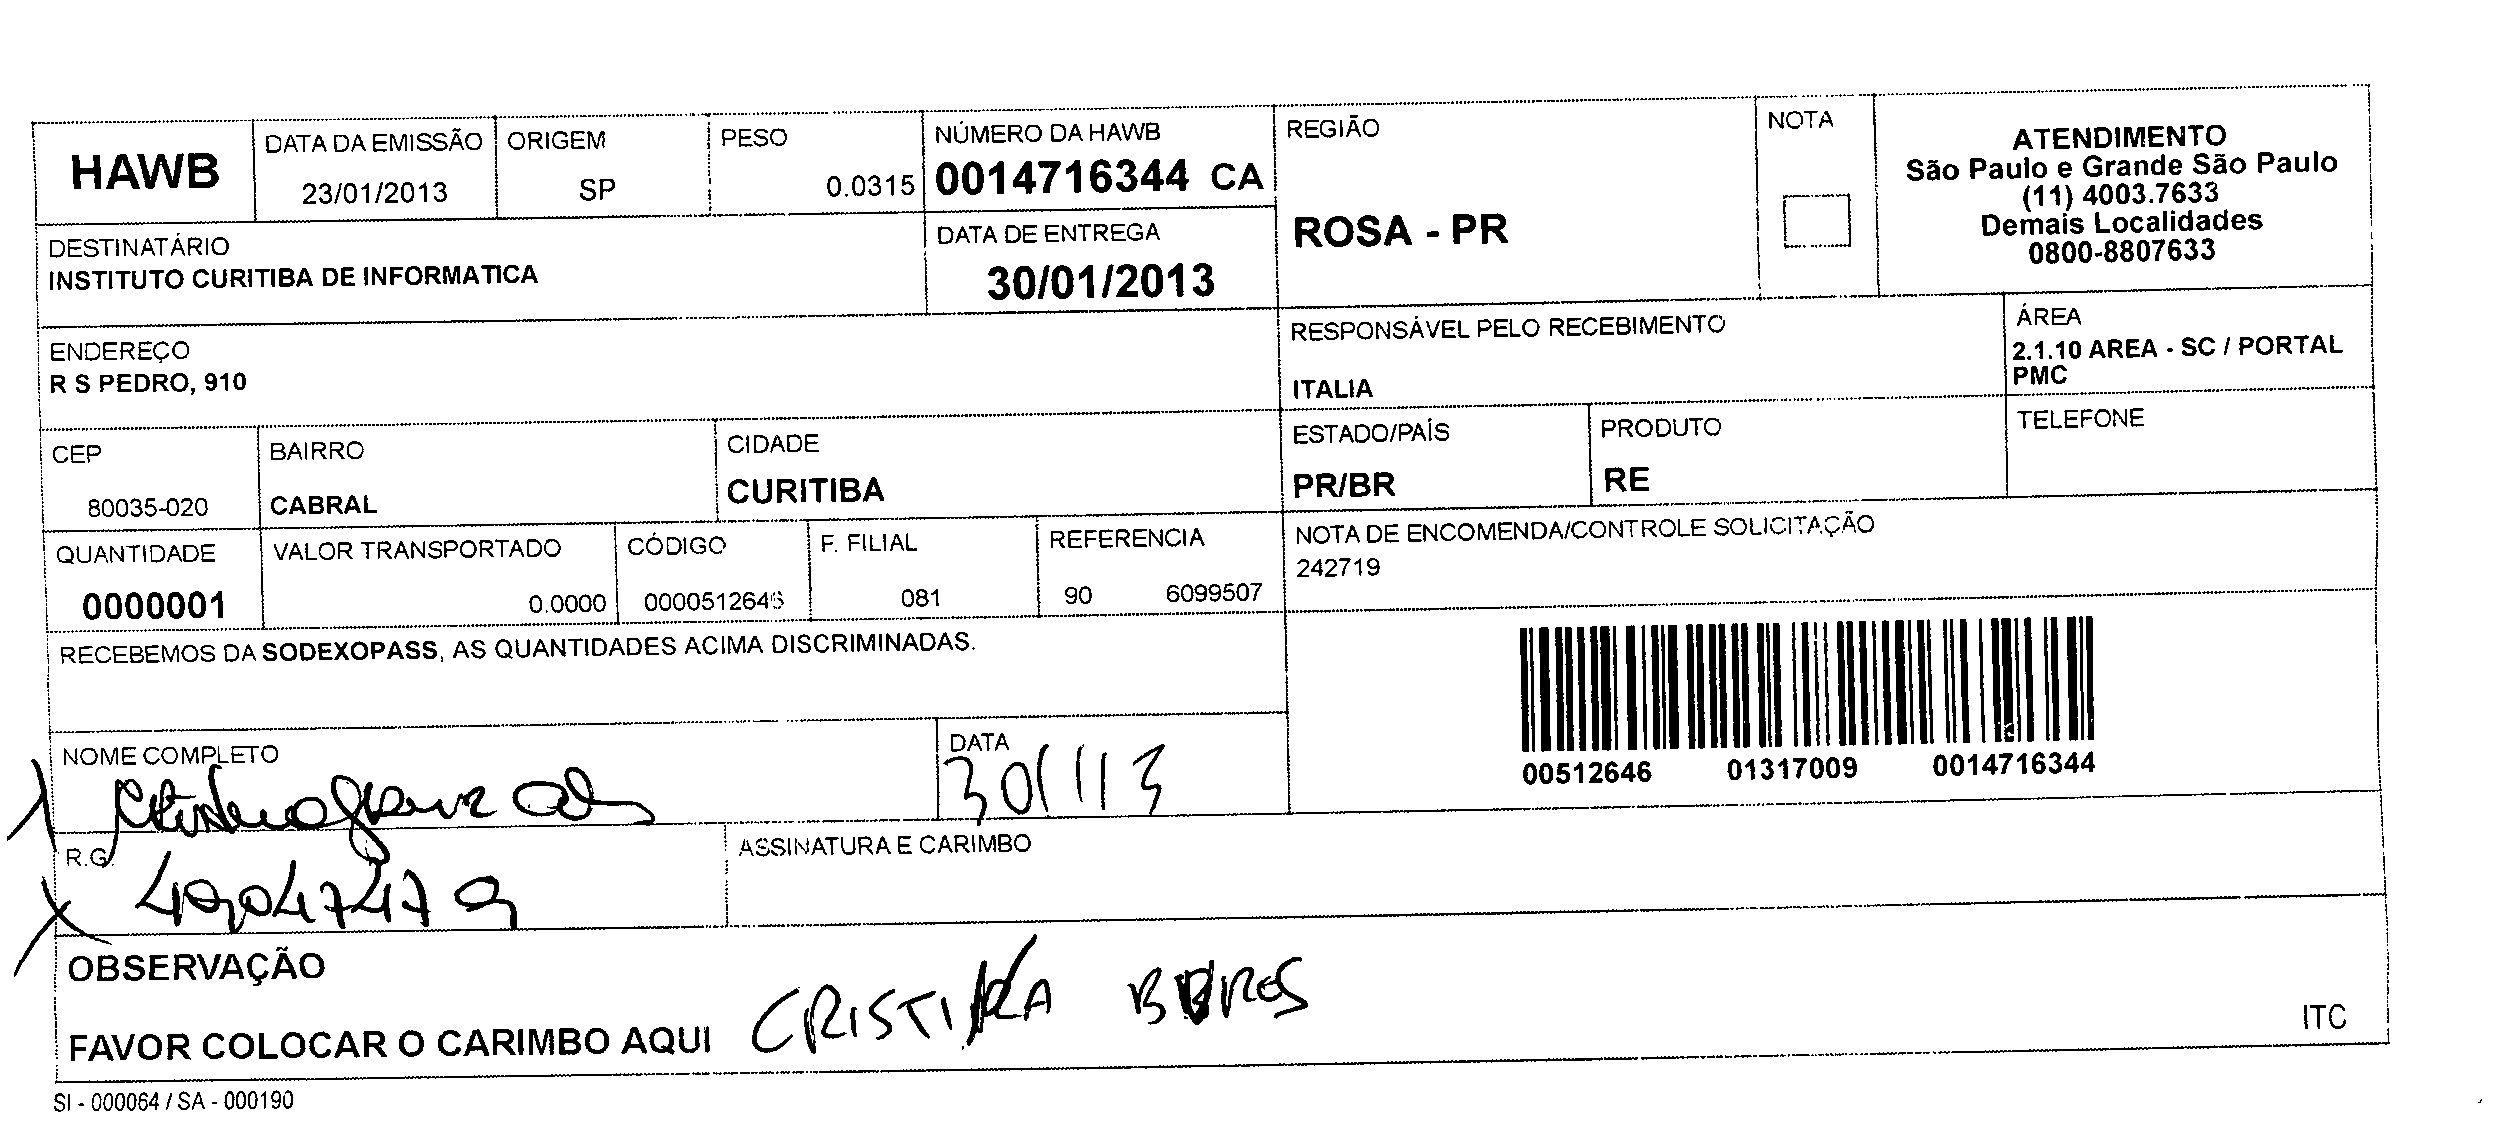 HAWB
DATA DA EMISSÃO
23/01/2013
ORIGEM
SP
PESO
0.0315
NÚMERO DA HAWB
0014716344 CA
REGIÃO
ROSA - PR
NOTA
ATENDIMENTO
São Paulo e Grande São Paulo
(11) 4003.7633
Demais Localidades
0800-8807633
DESTINATÁRIO
INSTITUTO CURITIBA DE INFORMATICA
DATA DE ENTREGA
30/01/2013
ENDEREÇO
R S PEDRO, 910
RESPONSÁVEL PELO RECEBIMENTO
ITALIA
ÁREA
2.1.10 AREA - SC / PORTAL
PMC
CEP
80035-020
BAIRRO
CABRAL
CIDADE
CURITIBA
ESTADO/PAÍS
PR/BR
PRODUTO
RE
TELEFONE
QUANTIDADE
0000001
VALOR TRANSPORTADO
0.0000
CÓDIGO
0000512646
F. FILIAL
081
REFERENCIA
90 6099507
NOTA DE ENCOMENDA/CONTROLE SOLICITAÇÃO
242719
RECEBEMOS DA SODEXOPASS, AS QUANTIDADES ACIMA DISCRIMINADAS.
00512646 01317009 0014716344
NOME COMPLETO
DATA
30/1/13
R.G.
ASSINATURA E CARIMBO
OBSERVAÇÃO
FAVOR COLOCAR O CARIMBO AQUI
CRISTINA
ITC
SI - 000064 / SA - 000190